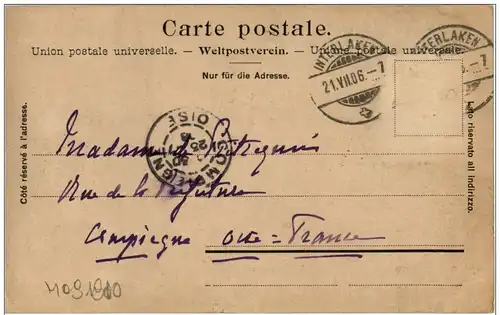 Carte postale.
Union postale universelle. — Weltpostverein. — Unione postale universale.
Nur für die Adresse.
INTERLAKEN
21.VII.06.–7
INTERLAKEN
–7
Côté réservé à l'adresse.
Lato riservato all indirizzo.
OISE
Madame
Rue de la
Compiegne Oise = France